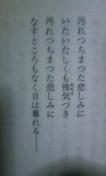 汚れつちまつた悲しみに
いたいたしくも怖気づき
汚れつちまつた悲しみに
なすところもなく日は暮れる……